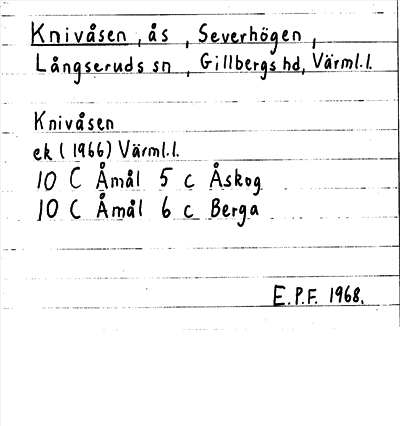 Knivåsen, ås, Severhögen,
Långseruds sn, Gillbergs hd, Värml.l.
Knivåsen
ek (1966) Värml.l.
10 C Åmål 5 c Åskog
10 C Åmål 6 c Berga
E.P.F. 1968.